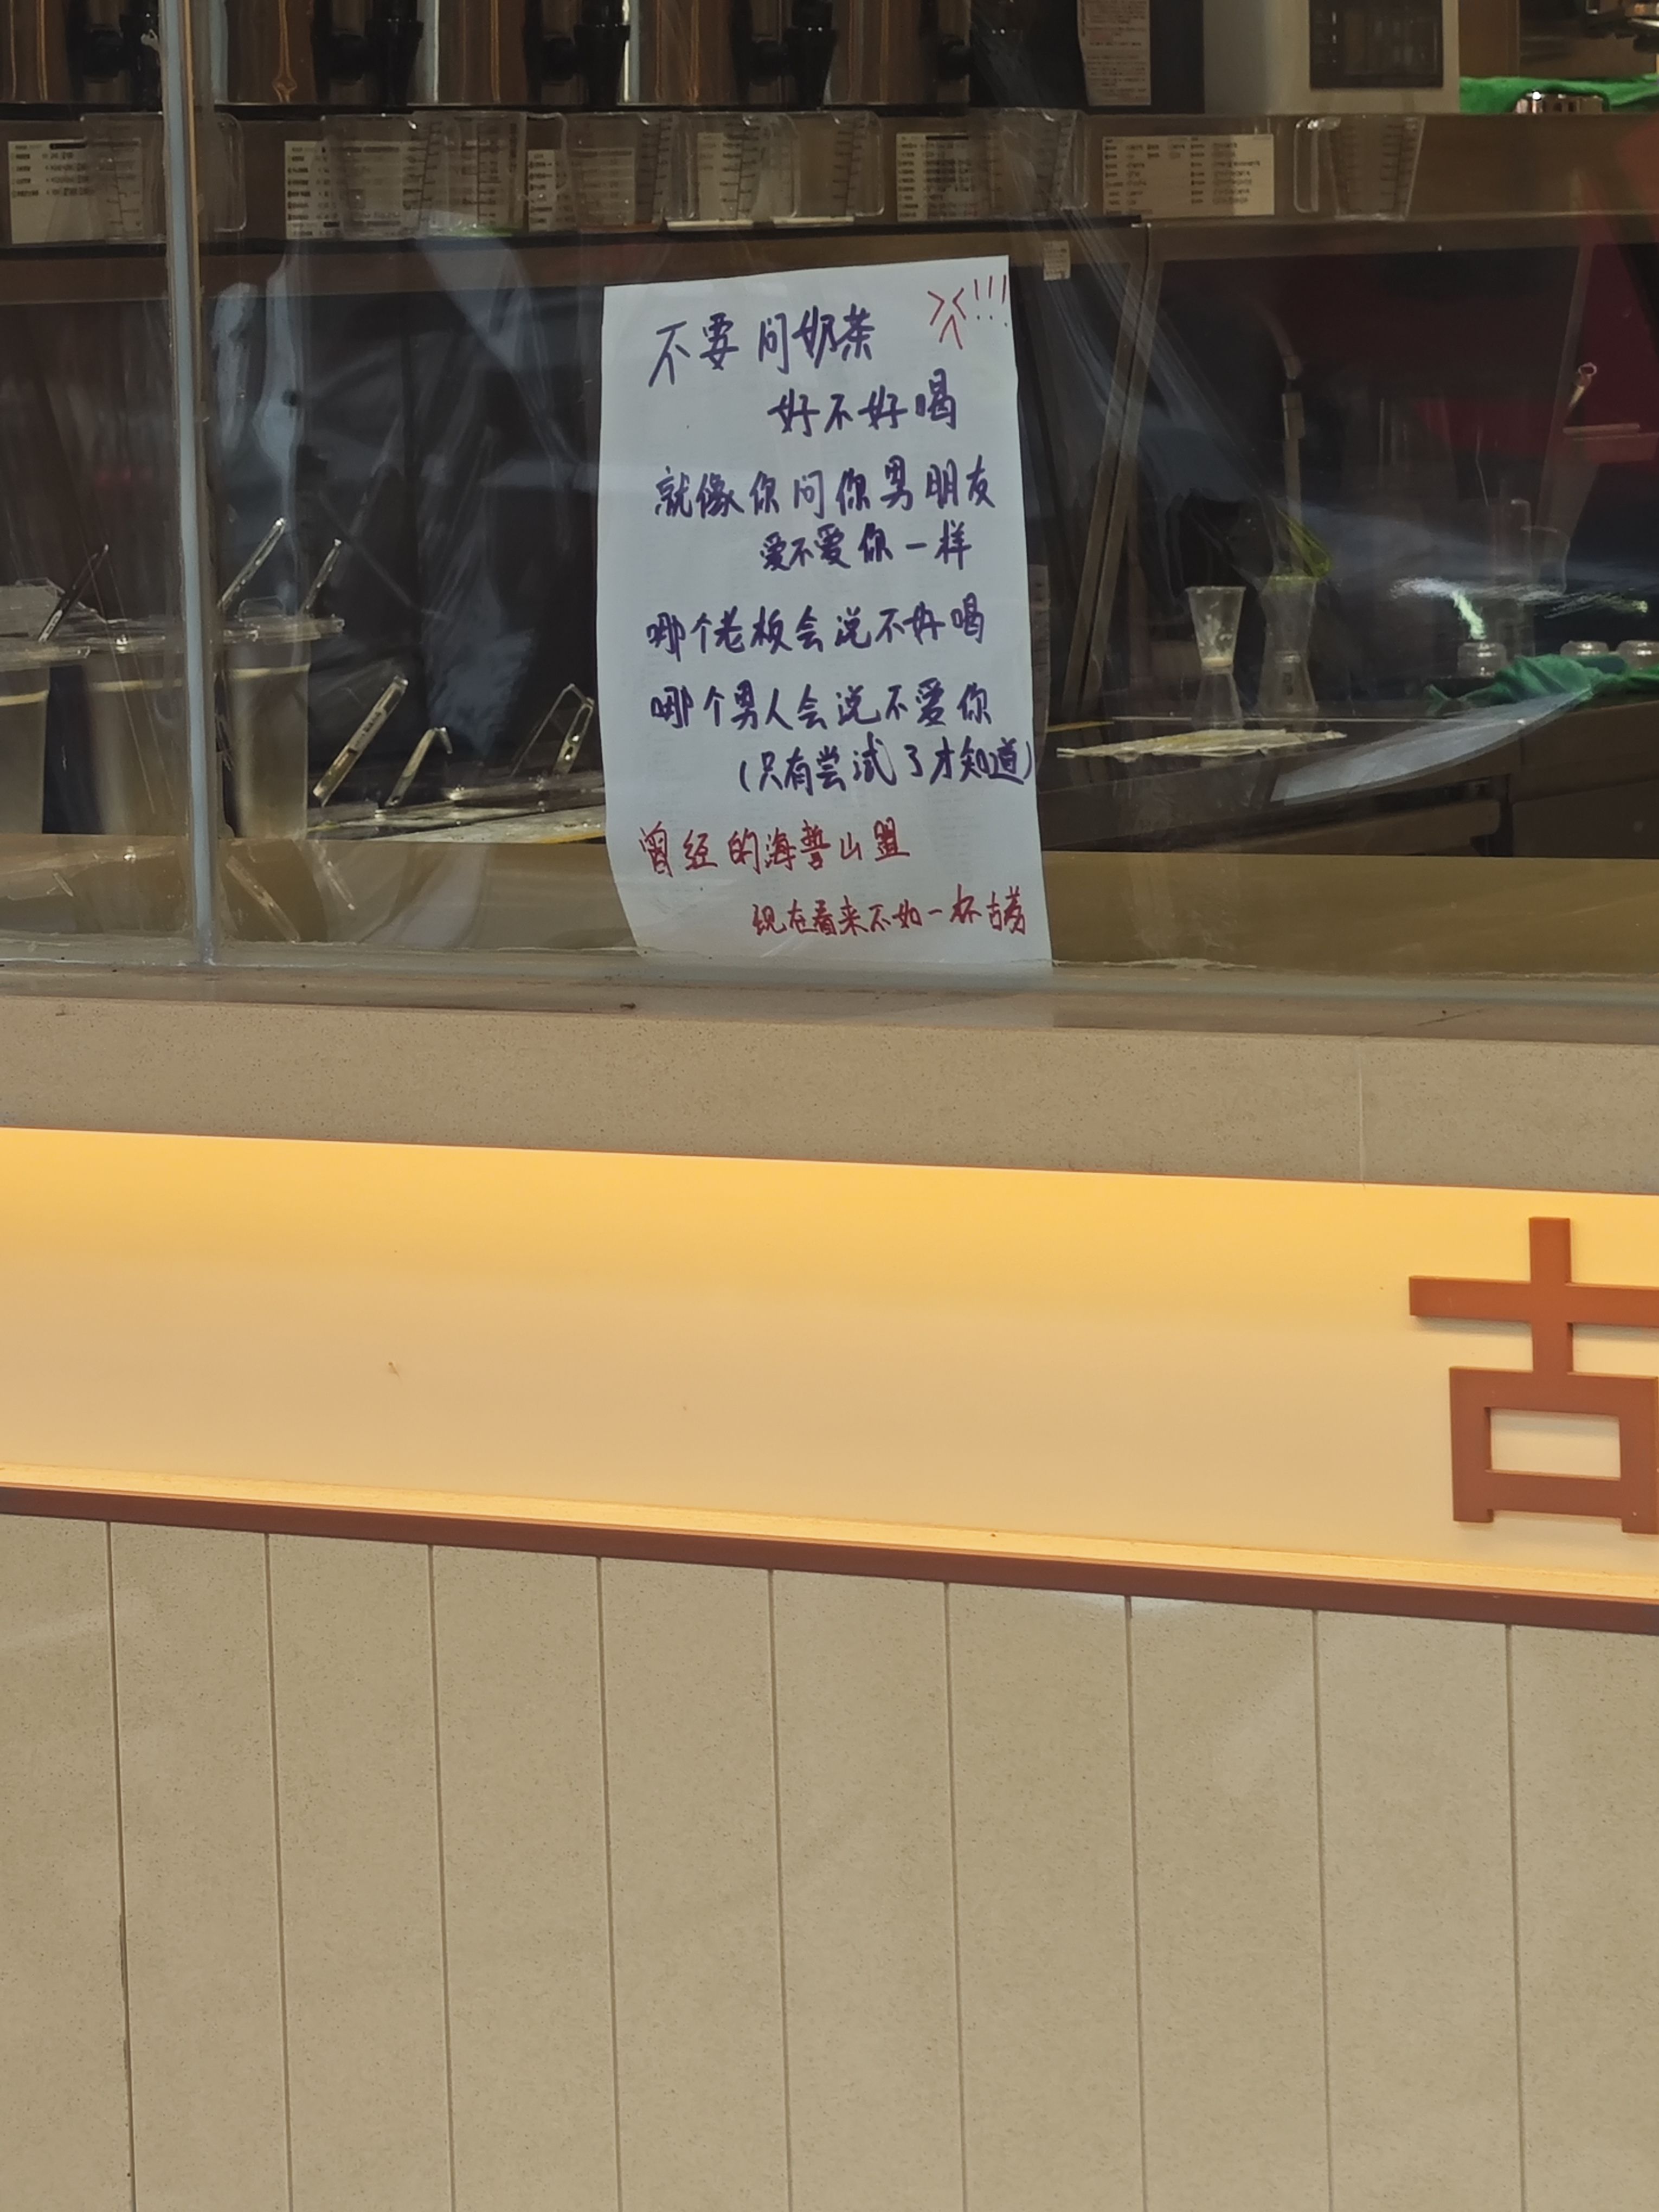 不要问奶茶 !!!
好不好喝
就像你问你男朋友
爱不爱你一样
哪个老板会说不好喝
哪个男人会说不爱你
(只有尝试了才知道)
曾经的海誓山盟
现在看来不如一杯古茗
古